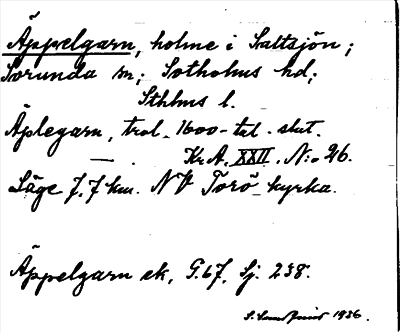 Äppelgarn, holme i Saltsjön;
Sorunda sn; Sotholms hd;
Sthlms l.
Äplegarn, trol. 1600-tal. slut.
— . Kr.A. XXII. N:o 26.
Läge 7,7 km. NV Torö kyrka.
Äppelgarn ek, G.67, Sj. 238.
1936.